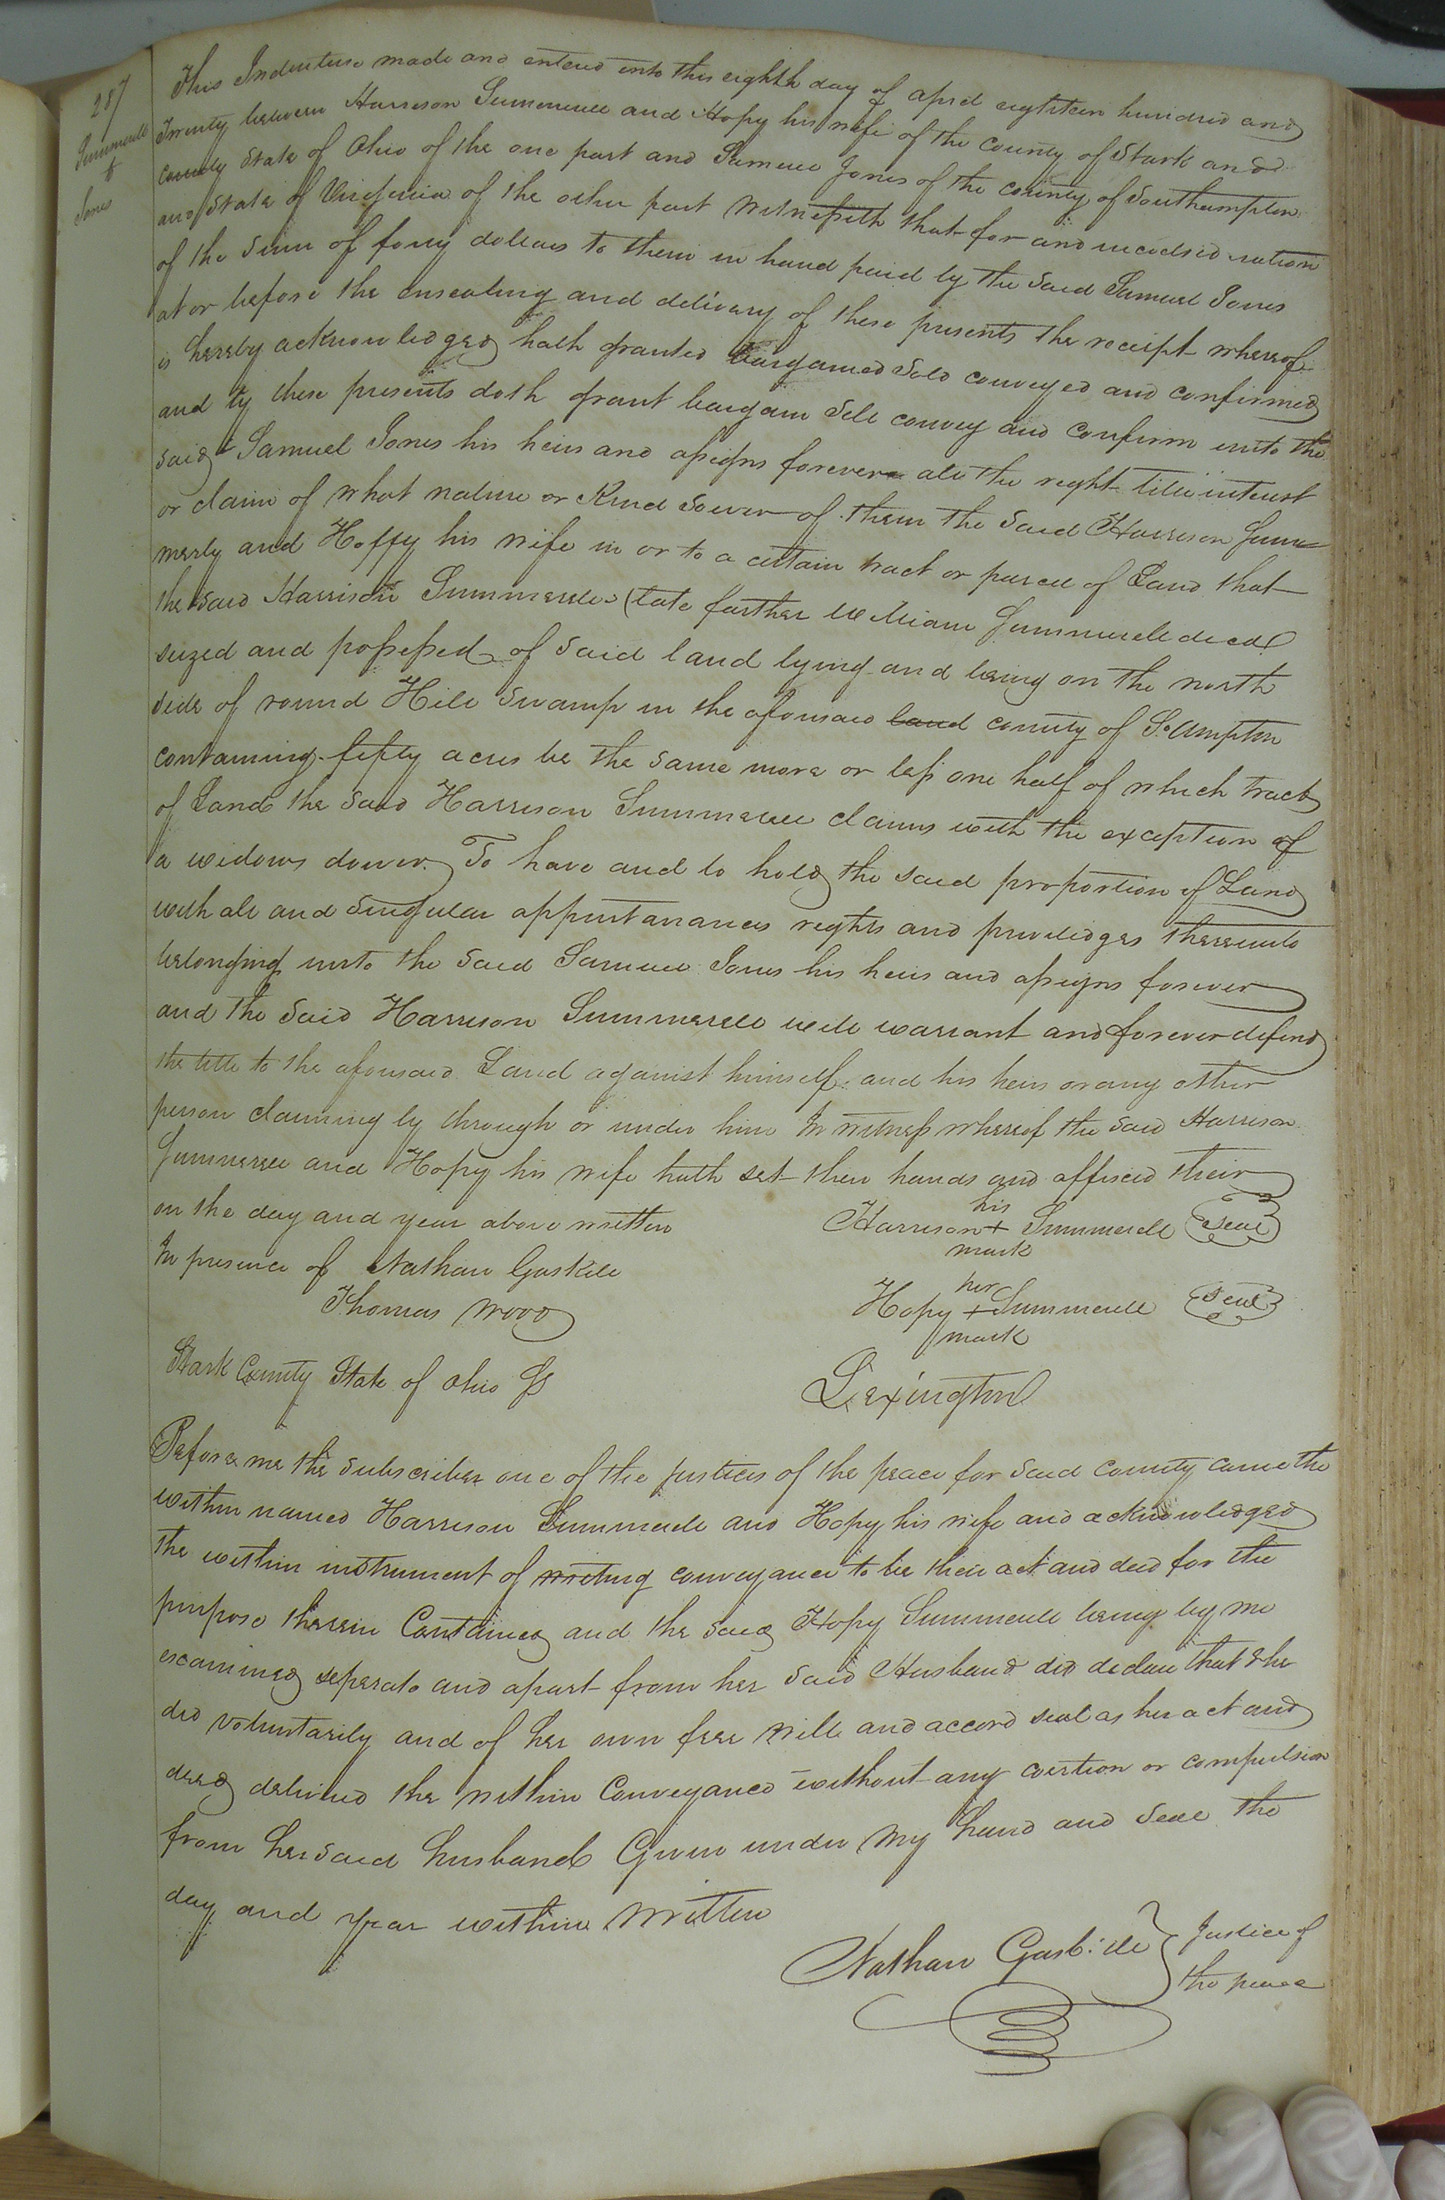 287
Summerell
&
Jones
This Indenture made and entered into this eighth day of april eighteen hundred and
Twenty between Harrison Summerell and Hopy his wife of the County of Stark and
county State of Ohio of the one part and Samuel Jones of the county of Southampton
and State of Virginia of the other part Witnesseth that for and in considiration
of the Sum of forty dollars to them in hand paid by the Said Samuel Jones
at or before the ensealing and delivery of these presents the receipt whereof
is hereby acknowledged hath granted bargained Sold conveyed and confirmed
and by these presents doth grant bargain Sell convey and Confirm unto the
said Samuel Jones his heirs and assigns forever all the right title interest
or claim of what nature or Kind soever of them the Said Harrison Sum
merly and Hoppy his wife in or to a certain tract or parcel of Land that
the Said Harrison Summerell (late farther William Summerell decd
seized and possessed of Said land lying and being on the north
side of round Hill Swamp in the aforesaid land county of So.Ampton
containing fifty acres be the same more or less one half of which tract
of Land the Said Harrison Summerell claims with the exception of
a widows dower. To have and to hold the said proportion of Land
with all and Singular appurtanances rights and priviledges thereunto
belonging unto the Said Samuel Jones his heirs and assigns forever
and the Said Harrison Summerell will warrant and forever defend
the title to the aforesaid Land against himself and his heirs or any other
person claiming by through or under him In witness whereof the Said Harrison
Summerell and Hopy his wife hath set their hands and affixed their
on the day and year above written
his
Harrison + Summerell Seal
mark
In presence of Nathan Gaskill
Thomas Wood
her
Hopy + Summerell Seal
mark
Stark County State of Ohio Ss
Lexington
Before me the subscriber one of the justices of the peace for said county came the
within named Harrison Summerell and Hopy his wife and acknowledged
the within instrument of writing conveyance to be their act and deed for the
purpose therein Contained and the said Hopy Summerell being by me
examined seperate and apart from her Said Husband did declare that she
did voluntarily and of her own free will and accord seal as her act and
deed delivired the within Conveyance without any coertion or compulsion
from her said husband Given under my hand and Seal the
day and year within Written
Nathan Gaskill } Justice of
the peace